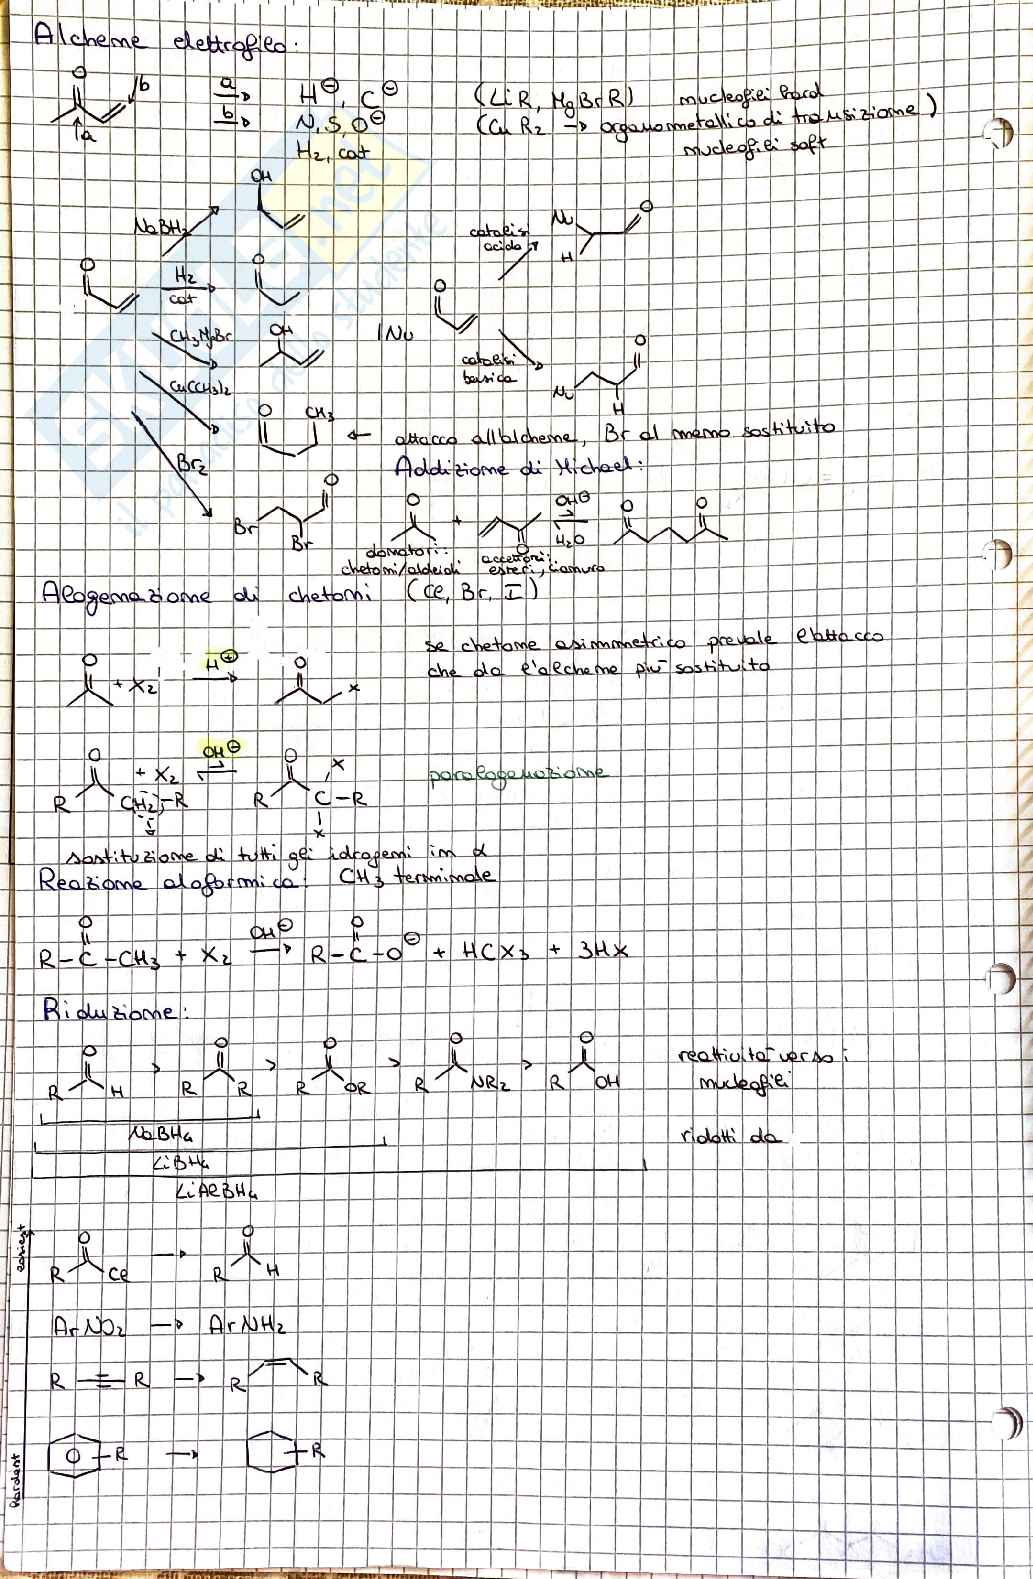 Alchene elettrofilo:
O
b
a
a
b
H⊖, C⊖ (LiR, MgBrR) nucleofili hard
N, S, O⊖ (CuR2 → organometallico di transizione)
H2, cat nucleofili soft
OH
NaBH4
O
H2
cat
O
CH3MgBr
OH
Cu(CH3)2
O CH3
Br2
O
Br
Br
/Nu
O
catalisi
acida
Nu
H
O
catalisi
basica
O
Nu
H
← attacco all'alchene, Br al meno sostituito
Addizione di Michael:
O + O OH⊖ ⇌ H2O O O
donatori:
chetoni/aldeidi
accettori:
esteri, cianuro
Alogenazione di chetoni (Cl, Br, I)
O + X2 H⊕ → O X
se chetone asimmetrico prevale l'attacco
che dà l'alchene più sostituito
O OH⊖ O X
+ X2 ⇌
R CH2-R R C-R
X
polialogenazione
sostituzione di tutti gli idrogeni in α
Reazione aloformica: CH3 terminale
O OH⊖ O
R-C-CH3 + X2 → R-C-O⊖ + HCX3 + 3HX
Riduzione:
O > O > O > O > O
R H R R R OR R NR2 R OH
reattività verso i
nucleofili
NaBH4
LiBH4
LiAlBH4
ridotti da
easiest
O → O
R Cl R H
ArNO2 → ArNH2
R≡R → R R
R → R
hardest